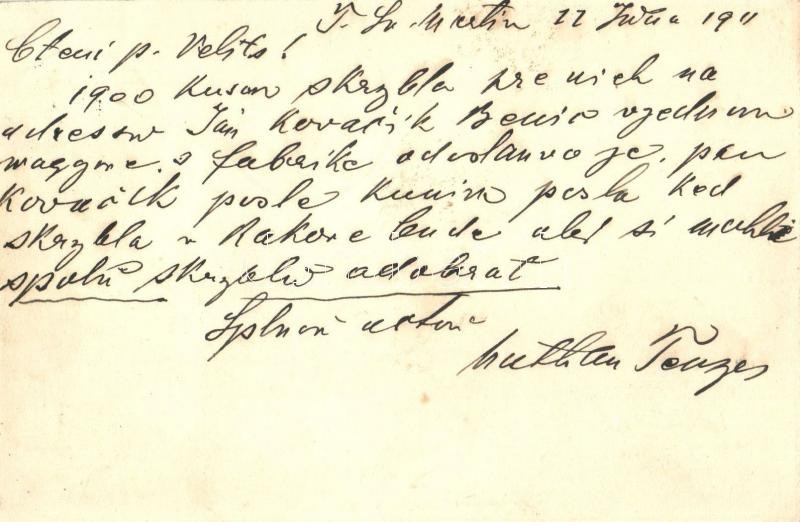 T. Sv. Martin 22 Júna 1911
Cteni p. Velits!
1900 Kusow skrzbla pre nich na
adressu Ján Kovačik Benic vjednom
waggone s fabrike odoslanuo je. pan
Kovačik posle Kunim posla Ked
skrzbla v Rakove bude aby si mohli
spolu skrzblu adobrať
S plnou uctou
Nathan